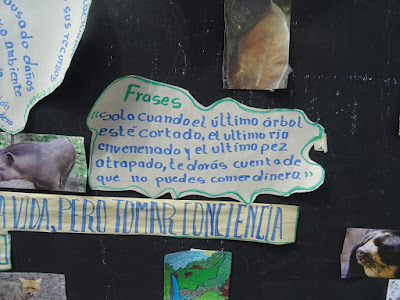 sus recursos
ousado daños
io ambiente
Frases
"Solo cuando el último árbol
esté cortado, el ultimo rio
envenenado y el ultimo pez
atrapado, te darás cuenta de
que no puedes comer dinero."
A VIDA, PERO TOMAR CONCIENCIA